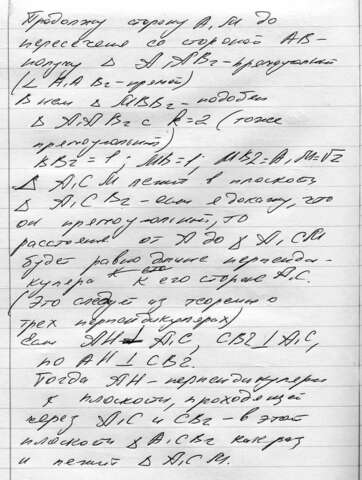 Продолжу сторону A₁M до
пересечения со стороной AB -
получу Δ A₁AB₂ - прямоугольный
(∠ A₁AB₂ - прямой)
В нем Δ MBB₂ - подобен
Δ A₁AB₂ с k=2 (тоже
прямоугольный)
BB₂ = 1; MB = 1; MB2 = A₁M = √2
Δ A₁CM лежит в плоскости
Δ A₁CB₂ - если я докажу, что
он прямоугольный, то
расстояние от A до Δ A₁CM
будет равно длине перпенди-
куляра к его стороне A₁C.
(Это следует из теоремы о
трех перпендикулярах)
Если AH ⊥ A₁C, CB2 ⊥ A₁C,
то AH ⊥ CB2.
Тогда AH - перпендикуляр
к плоскости, проходящей
через A₁C и CB₂ - в этой
плоскости Δ A₁CB₂ как раз
и лежит Δ A₁CM.